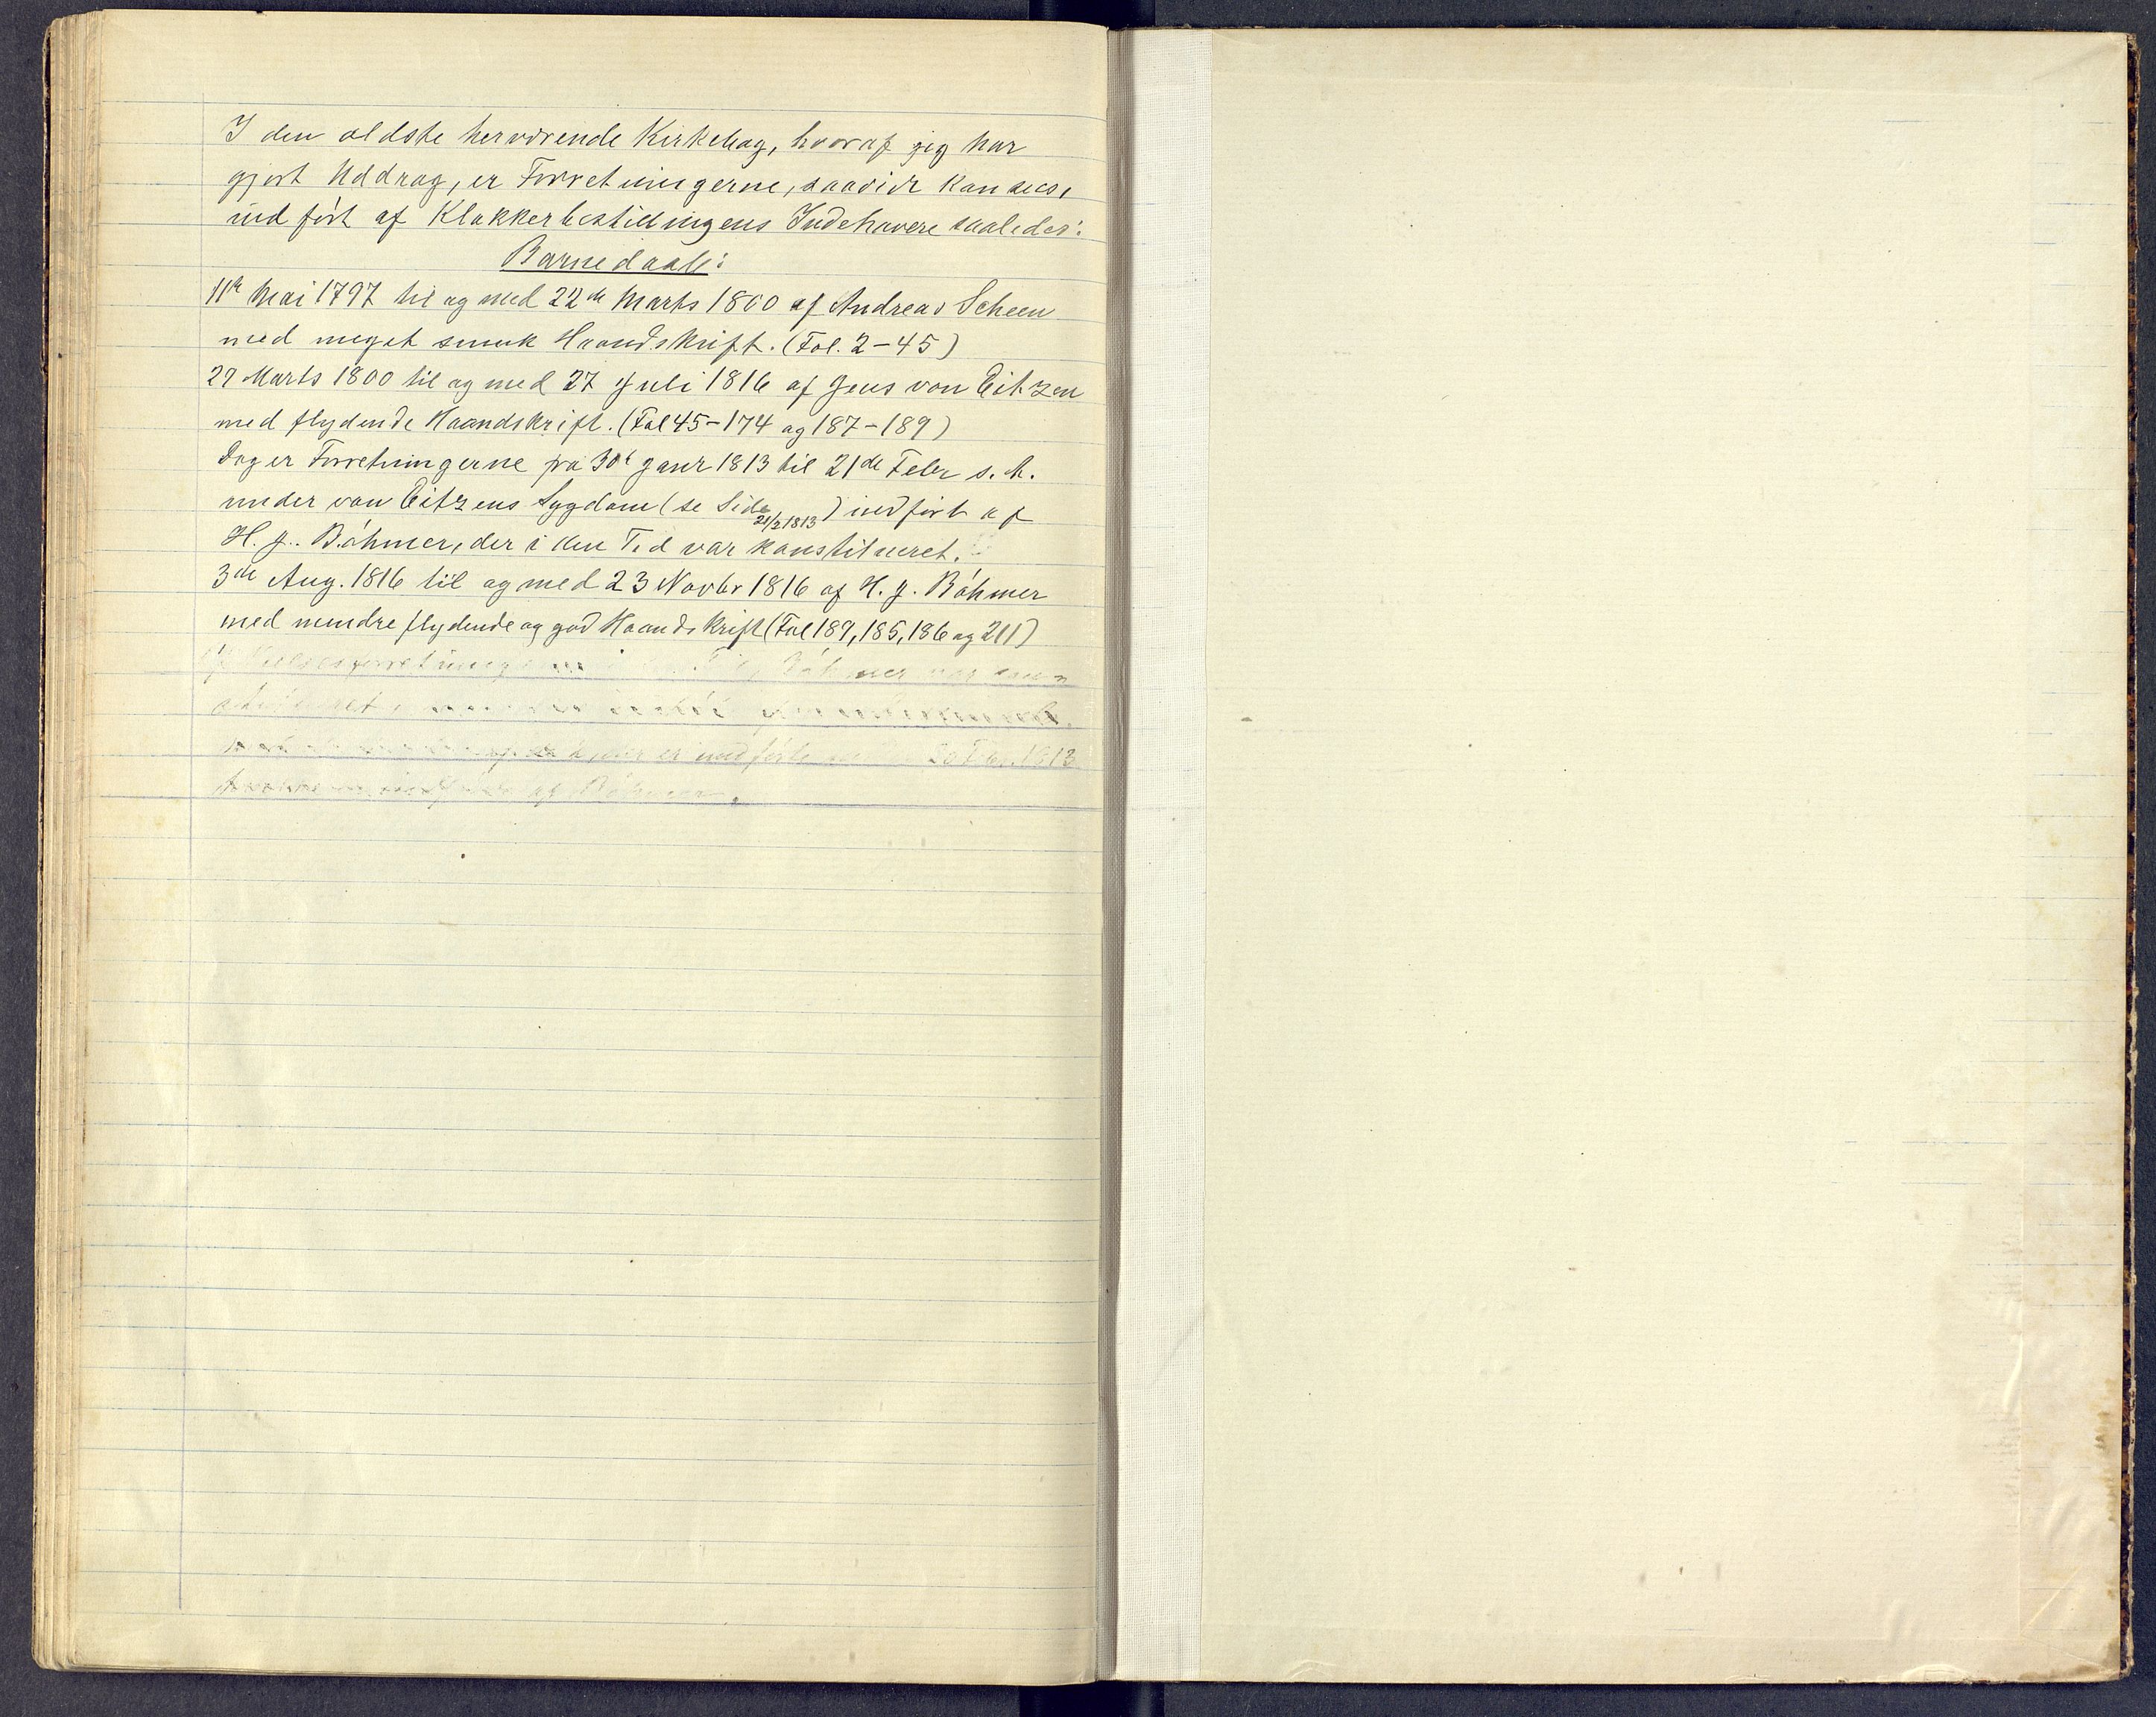 I den ældste herværende Kirkebog, hvoraf jeg har
gjort Uddrag, er Forretningerne, saavidt kan sees,
indført af Klokkerbestillingens Indehavere saaledes:
Barnedaab:
11te Mai 1797 til og med 22de Marts 1800 af Andreas Scheen
med meget smuk Haandskrift. (Fol. 2-45)
29 Marts 1800 til og med 27 Juli 1816 af Jens von Eitzen
med flydende Haandskrift. (Fol 45-174 og 187-189)
Dog er Forretningerne fra 30te Janr 1813 til 21de Febr s. A.
under von Eitzens Sygdom (se Side 21/2 1813) indført af
H. J. Bøhmer, der i den Tid var konstitueret.
3die Aug. 1816 til og med 23 Novbr 1816 af H. J. Bøhmer
med mindre flydende og god Haandskrift (Fol 189, 185, 186 og 211)
Bøhmer var
er indførte 1813
af Bøhmer.